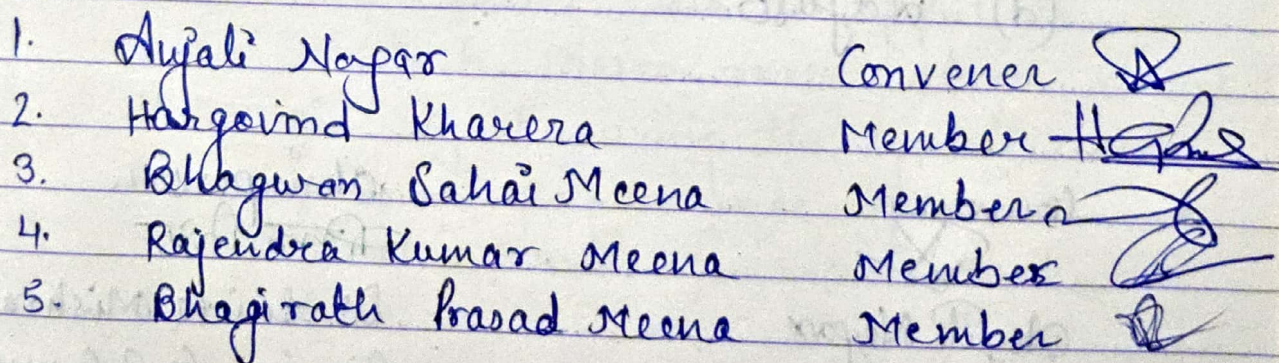 1. Anjali Nagar Convener
2. Hargovind Kharera Member
3. Bhagwan Sahai Meena Member
4. Rajendra Kumar Meena Member
5. Bhagirath Prasad Meena Member